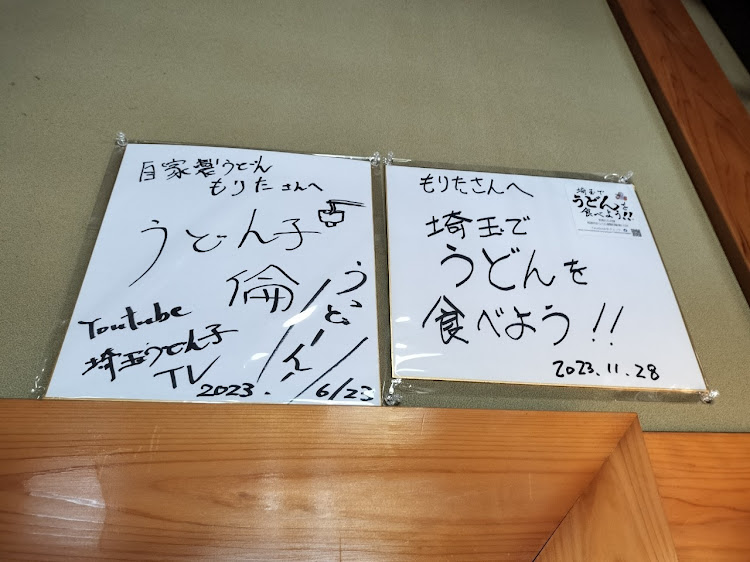 自家製うどん
もりたさんへ
うどん子
倫
うどーん!
Youtube
埼玉うどん子
TV
2023. 6/23
もりたさんへ
埼玉で
うどんを
食べよう!!
2023.11.28
埼玉で
うどんを
食べよう!!